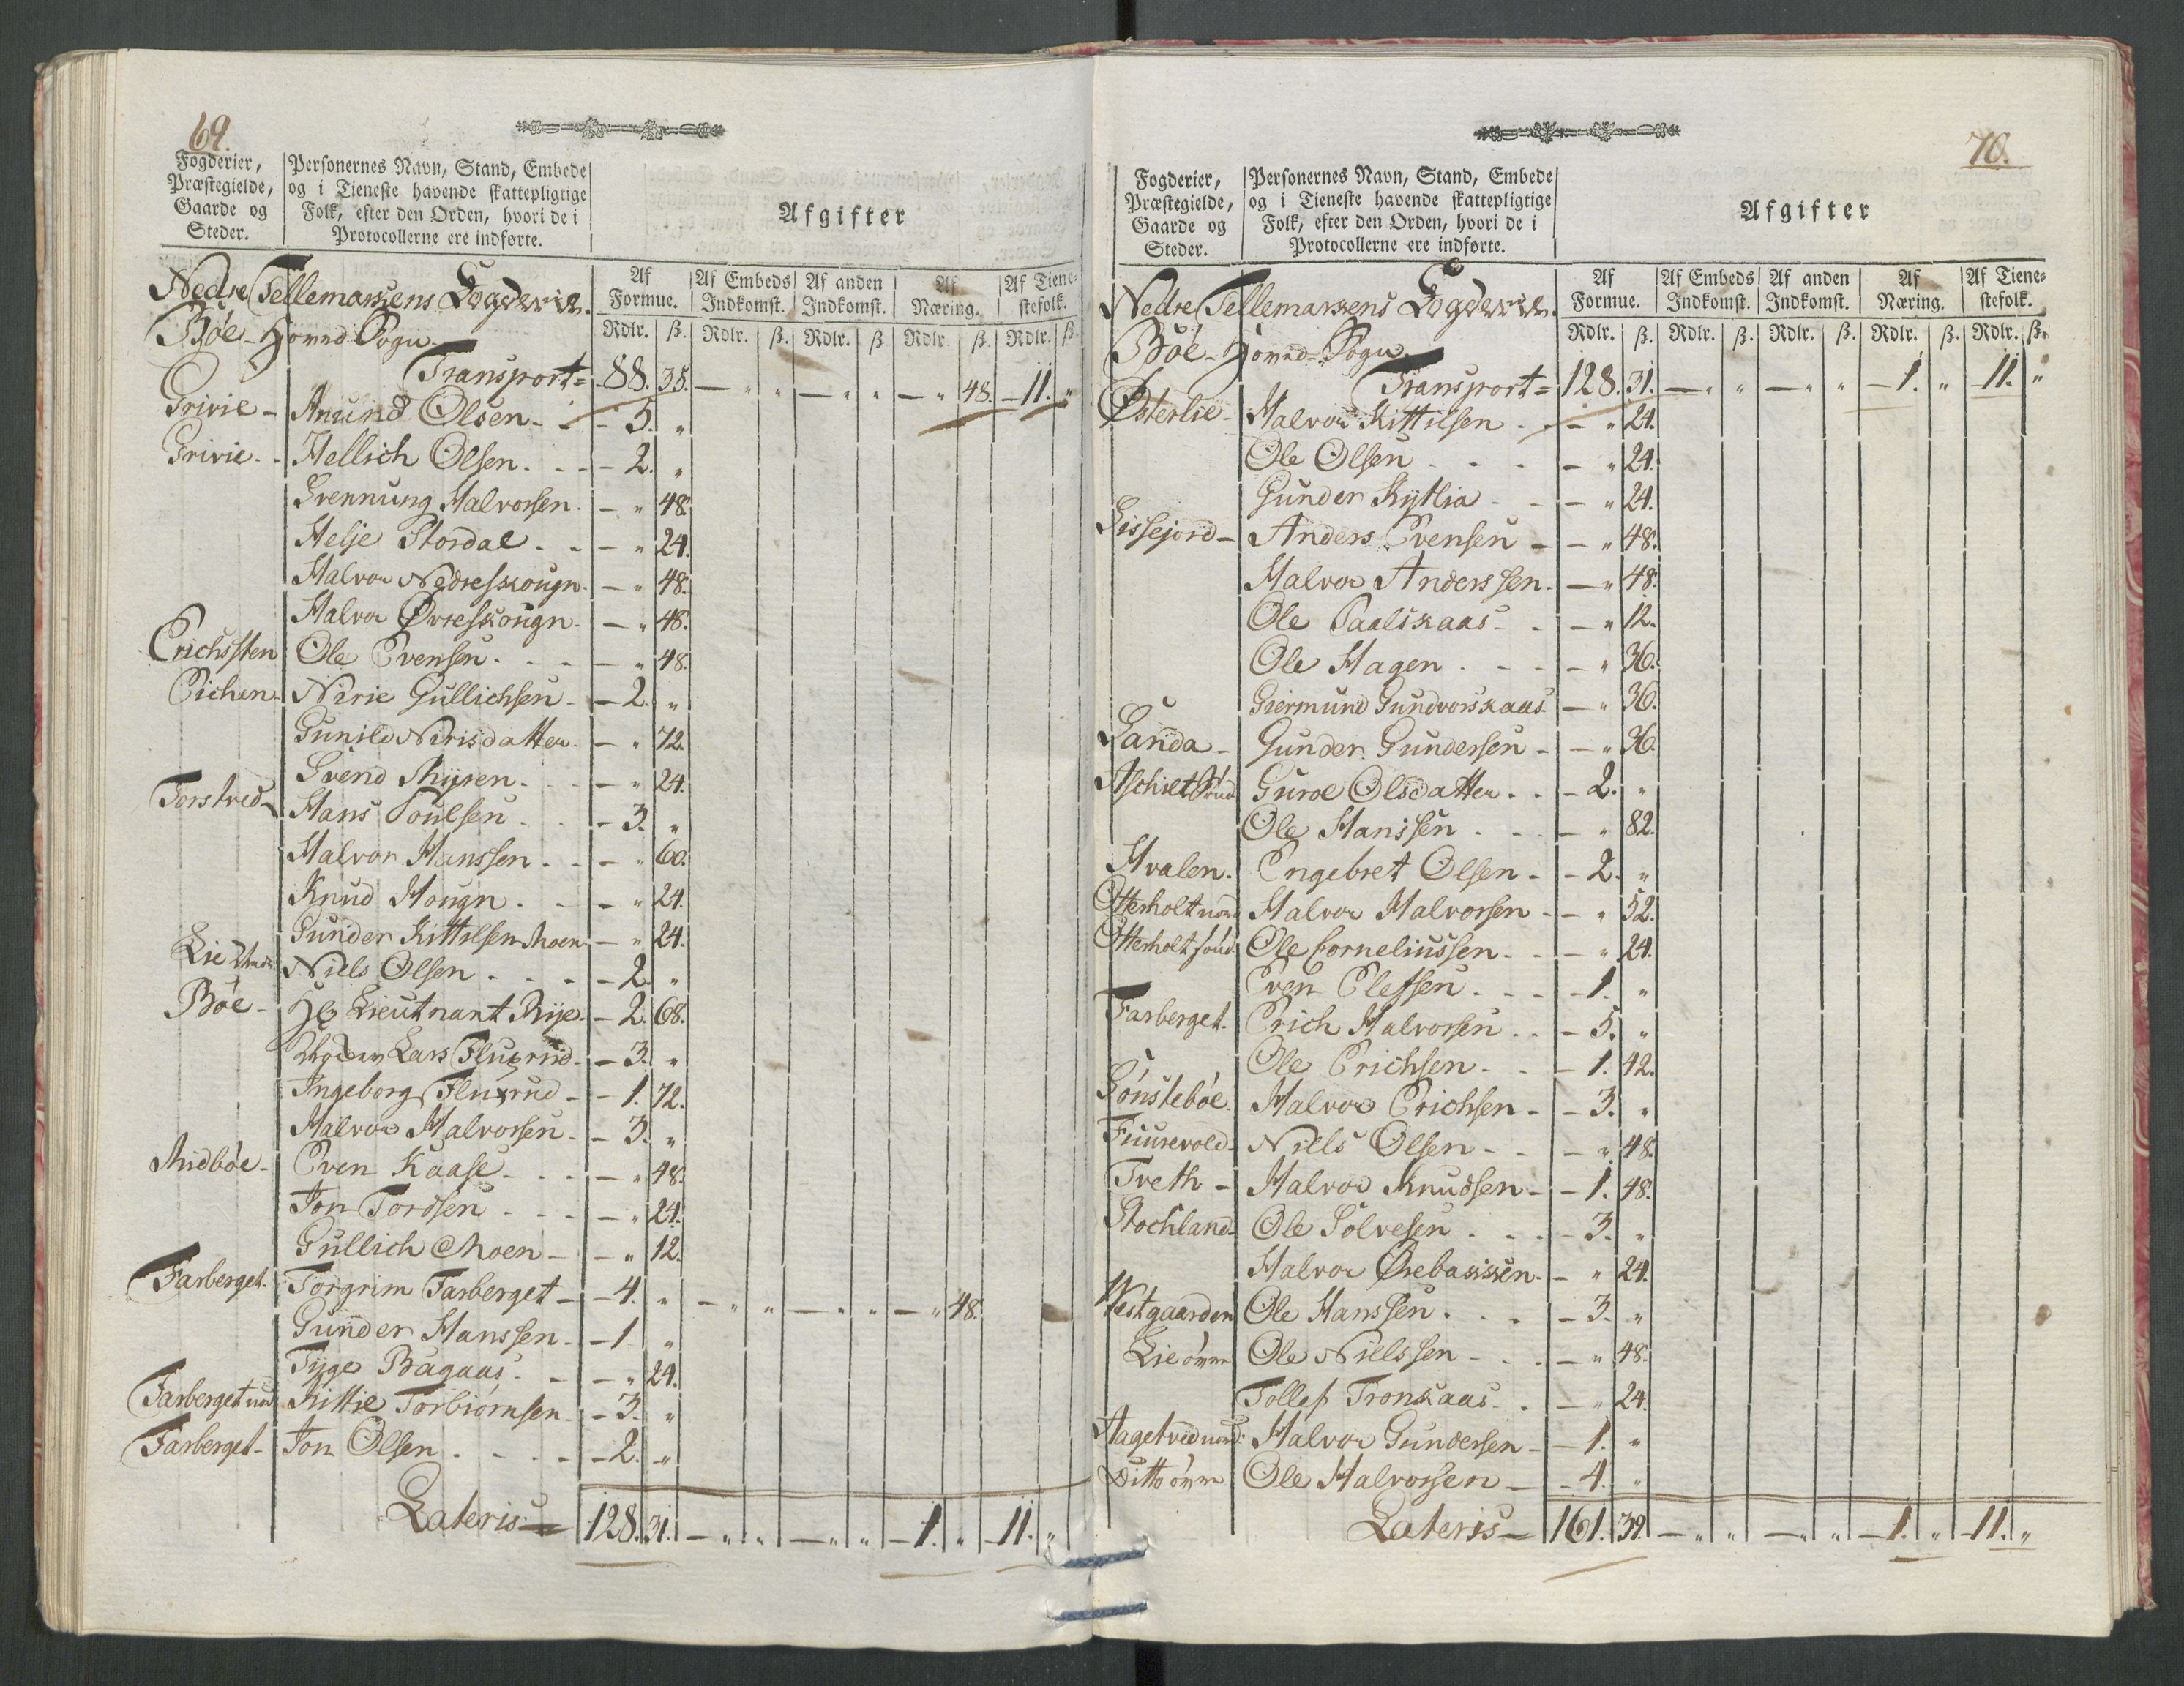 69.
Fogderier, Præstegielde, Gaarde og Steder. | Personernes Navn, Stand, Embede og i Tieneste havende skattepligtige Folk, efter den Orden, hvori de i Protocollerne ere indførte. | Afgifter
Af Formue. | Af Embeds Indkomst. | Af anden Indkomst. | Af Næring. | Af Tienestefolk.
Rdlr. | ß. | Rdlr. | ß. | Rdlr. | ß | Rdlr | ß. | Rdlr. | ß
Nedre Tellemarkens Fogderie.
Bøe-Hoved Sogn.
Transport = 88. 35. — " " — " " — " 48. — 11. "
Grivie - Anund Olsen - - 5. "
Grivie - Hellich Olsen - - 2. "
Svennung Halvorsen - " 48.
Helje Stordal - - " 24.
Halvor Nedreskougn - " 48.
Halvor Øvreskougn - " 48.
Erichssten Ole Evensen - - " 48.
Eichen - Nirie Gullichsen - 2. "
Gunild Nirisdatter - " 72.
Svend Myren - - " 24.
Forstved - Hans Poulsen - 3. "
Halvor Hanssen - - " 60.
Knud Hougn - - " 24.
Gunder Kittilsen Moen - " 24.
Lie Niels Olsen - - 2. "
Bøe - Hr Lieutnant Rye - 2. 68.
Lars Fluxrud - 3. "
Ingeborg Fluxrud - 1. 72.
Halvor Halvorsen - 3. "
Midbøe - Even Kaase - - " 48.
Jon Tordsen - - " 24.
Gullich Moen - " 12.
Farberget - Torgrim Farberget - 4. " — " " — " " — " 48.
Gunder Hanssen - 1 "
Tyge Bragaas - - " 24.
Farberget nord Kittil Torbiørnsen - 3. "
Farberget - Jon Olsen - - 2. "
Lateris — 128. 31. — " " — " " — 1. " — 11. "
70.
Fogderier, Præstegielde, Gaarde og Steder. | Personernes Navn, Stand, Embede og i Tieneste havende skattepligtige Folk, efter den Orden, hvori de i Protocollerne ere indførte. | Afgifter
Af Formue. | Af Embeds Indkomst. | Af anden Indkomst. | Af Næring. | Af Tienestefolk.
Rdlr. | ß. | Rdlr. | ß. | Rdlr. | ß. | Rdlr. | ß. | Rdlr. | ß.
Nedre Tellemarkens Fogderie.
Bøe-Hoved-Sogn.
Transport = 128. 31. — " " — " " — 1. " — 11. "
Østerlie - Halvor Kittilsen - " 24.
Ole Olsen - - " 24.
Gunder Kytlia - - " 24.
Sissejord - Anders Evensen - " 48.
Halvor Anderssen - " 48.
Ole Paalskaas - - " 12.
Ole Hagen - - " 36.
Giermund Gundvorskaas - " 36.
Sanda - Gunder Gundersen - " 36.
Aschilt Sønd Guroe Olsdatter - - 2. "
Ole Hanssen - - " 82.
Hvalen - Engebret Olsen - 2. "
Otterholt nord Halvor Halvorsen - " 52.
Otterholt sønd Ole Corneliussen - " 24.
Even Elefsen - - 1. "
Farberget - Erich Halvorsen - - 5. "
Ole Erichsen - - 1. 42.
Sønstebøe - Halvor Erichsen - 3. "
Fuurevold - Niels Olsen - - " 48.
Treth - Halvor Knudsen - 1. 48.
Stochland - Ole Sølvesen - - 3. "
Halvor Ørebakiksen - " 24.
Westgaarden Ole Hanssen - - 3. "
Lie øvre Ole Nielssen - - " 48.
Tollef Tronskaas - " 24.
Aagetved nord: Halvor Gundersen - 1. "
Ditto øvre Ole Halvorsen - 4. "
Lateris — 161. 39. — " " — " " — 1. " — 11. "